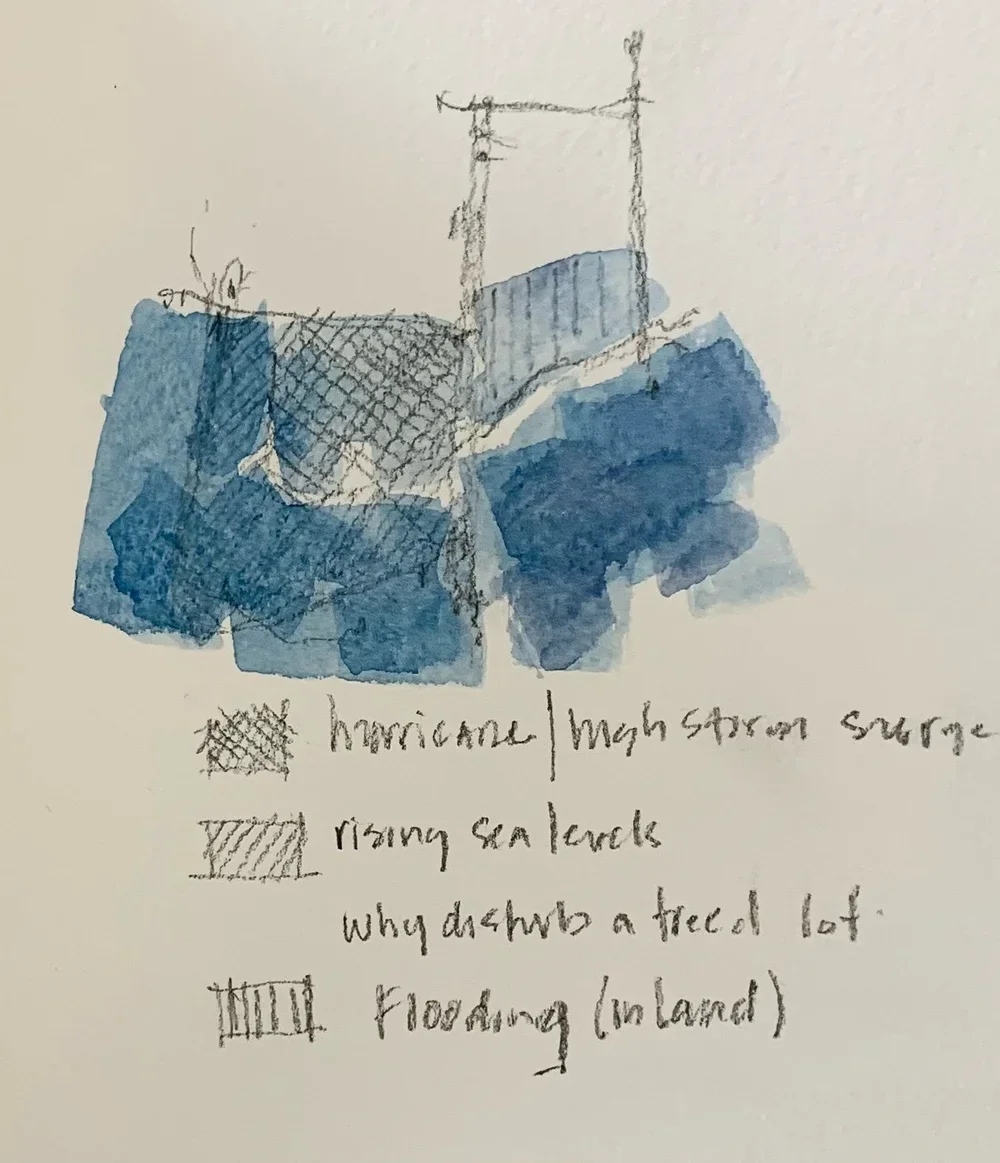 hurricane | high storm surge
rising sea levels
why disturb a treed lot.
Flooding (inland)